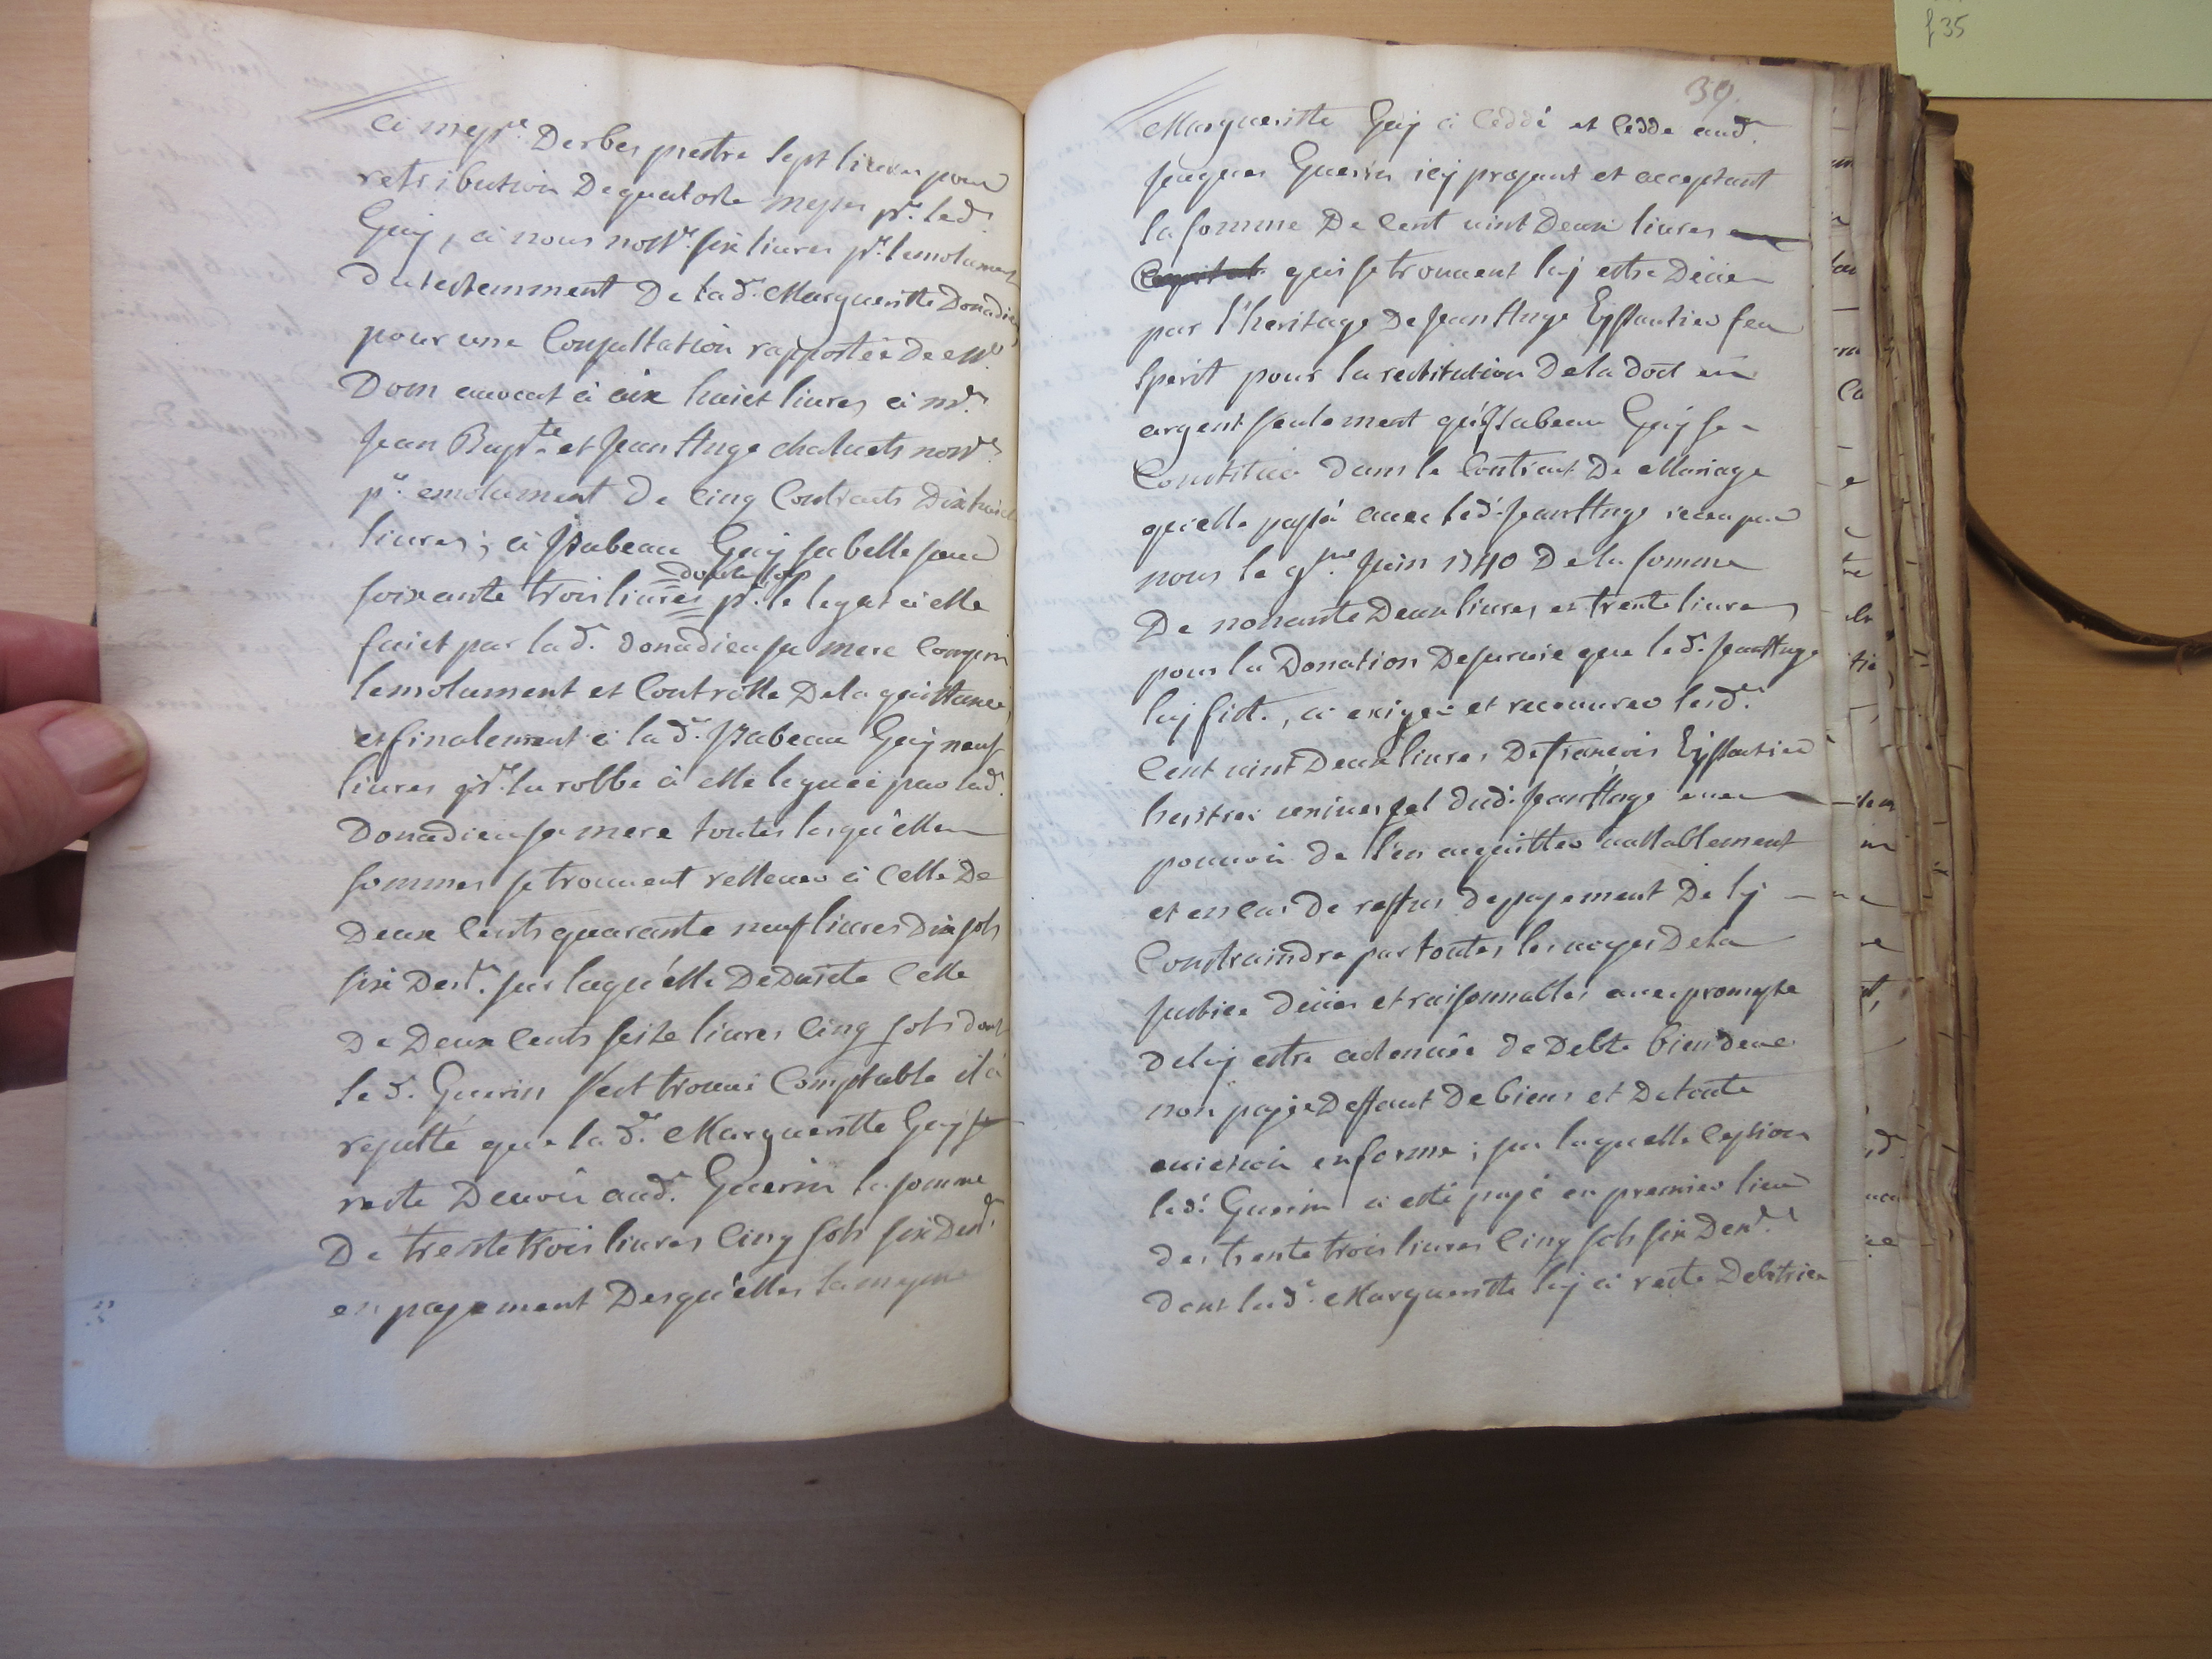 à mess.e Derbes prestre sept livres pour
retribution De quatorse messes pr. led.
Guy, à nous no.re six livres pr. lemolument
du testemment De la d. Margueritte Donadieu
pour une Consultation rapportée De M.e
Dom avocat à aix huict livres à m.e
Jean Bap.te et Jean Ange chaluets no.res
pr. emolument De Cinq Contracts Dixhuict
livres; à Isabeau Guy sa belle soeur
douse sols
soixante trois livres pr. le legat à elle
faict par la d. Donadieu sa mere Compris
lemolument et Controlle De la quittance,
et finalement à la d. Isabeau Guy neuf
livres pr. la robbe à elle leguée par lad.
Donadieu sa mere toutes lesquelles
sommes se trouvent rellever à Celle De
Deux Cents quarante neuf livres Dix sols
six Den.rs sur laquelle Deduite Celle
De Deux Cents seize livres Cinq sols dont
le d. Guerin s'est trouvé Comptable il a
resulté que la d. Margueritte Guy
reste Devoir aud. Guerin la somme
De trente trois livres Cinq sols six Den.rs
en payement Desquelles la mesme
39.
Margueritte Guy a Ceddé et Cedde aud.
Jaques Guerin icy present et acceptant
la somme De Cent vint Deux livres
qui se trouvent luy estre Deüe
par l'heritage De Jean Ange Eyssautier feu
Sperit pour la restitution De la dot en
argent seulement qu'Isabeau Guy se
Constitua dans le Contract De Mariage
quelle passa avec led. Jean Ange receu par
nous le Juin 1740 De la somme
De nonante Deux livres, et trente livres
pour la Donation De survie que le d. Jean Ange
luy fict, à exiger et recouvrer lesd.
Cent vint Deux livres De françois Eyssautier
heritier universel dud. Jean Ange avec
pouvoir de l'en acquitter vallablement
et en cas de reffus De payement De ly
Contraindre par toutes les voyes De la
justice Deües et raisonnables avec promesse
De luy estre de Debte bien Deue
non payée Deffaut De biens et De toute
eviction en forme; sur laquelle Cession
led. Guerin a esté payé en premier lieu
des trente trois livres Cinq sols six Den.rs
dont lad. Margueritte luy a resté Debitrice
f 35